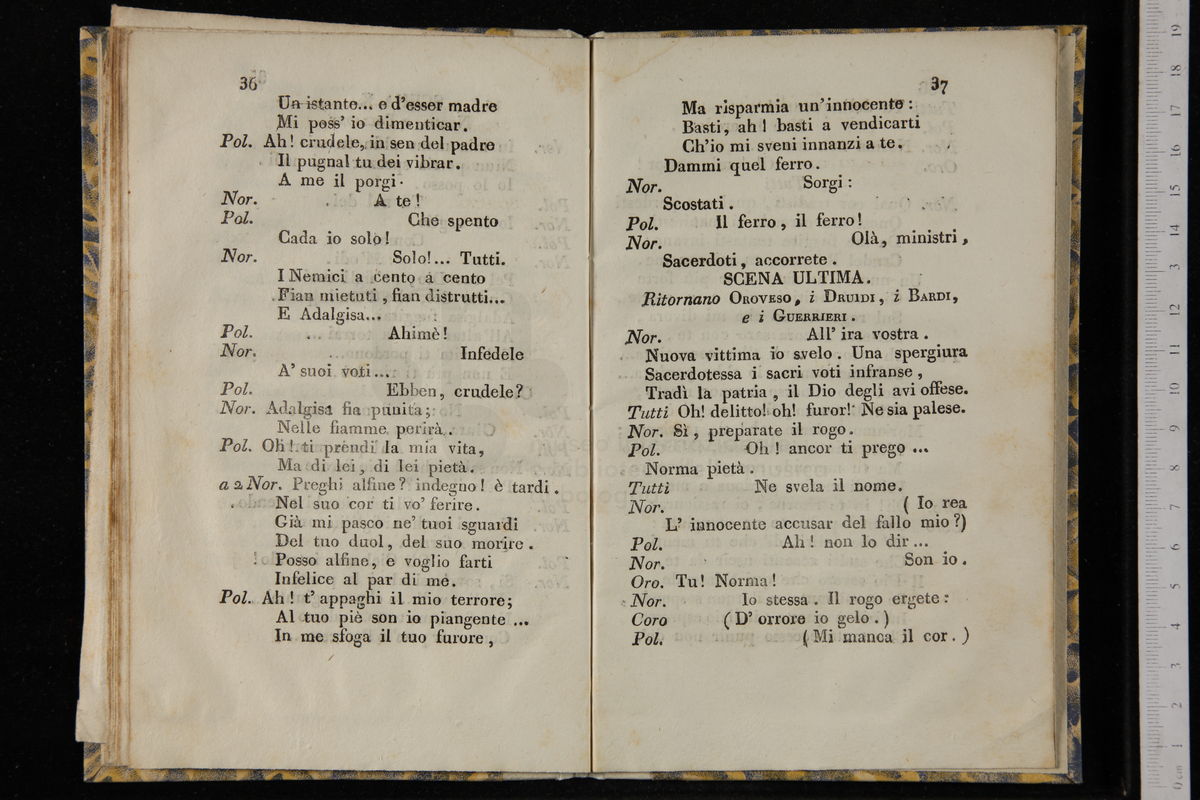 36
Un istante... e d'esser madre
Mi poss' io dimenticar.
Pol. Ah! crudele, in sen del padre
Il pugnal tu dei vibrar.
A me il porgi.
Nor. A te!
Pol. Che spento
Cada io solo!
Nor. Solo!... Tutti.
I Nemici a cento a cento
Fian mietuti, fian distrutti...
E Adalgisa...
Pol. Ahimè!
Nor. Infedele
A' suoi voti...
Pol. Ebben, crudele?
Nor. Adalgisa fia punita;
Nelle fiamme perirà.
Pol. Oh! ti prendi la mia vita,
Ma di lei, di lei pietà.
a 2 Nor. Preghi alfine? indegno! è tardi.
Nel suo cor ti vo' ferire.
Già mi pasco ne' tuoi sguardi
Del tuo duol, del suo morire.
Posso alfine, e voglio farti
Infelice al par di me.
Pol. Ah! t' appaghi il mio terrore;
Al tuo piè son io piangente ...
In me sfoga il tuo furore,
37
Ma risparmia un' innocente:
Basti, ah! basti a vendicarti
Ch'io mi sveni innanzi a te.
Dammi quel ferro.
Nor. Sorgi:
Scostati.
Pol. Il ferro, il ferro!
Nor. Olà, ministri,
Sacerdoti, accorrete.
SCENA ULTIMA.
Ritornano OROVESO, i DRUIDI, i BARDI,
e i GUERRIERI.
Nor. All' ira vostra.
Nuova vittima io svelo. Una spergiura
Sacerdotessa i sacri voti infranse,
Tradì la patria, il Dio degli avi offese.
Tutti Oh! delitto! oh! furor! Ne sia palese.
Nor. Sì, preparate il rogo.
Pol. Oh! ancor ti prego ...
Norma pietà.
Tutti Ne svela il nome.
Nor. (Io rea
L' innocente accusar del fallo mio?)
Pol. Ah! non lo dir...
Nor. Son io.
Oro. Tu! Norma!
Nor. Io stessa. Il rogo ergete:
Coro (D' orrore io gelo.)
Pol. (Mi manca il cor.)